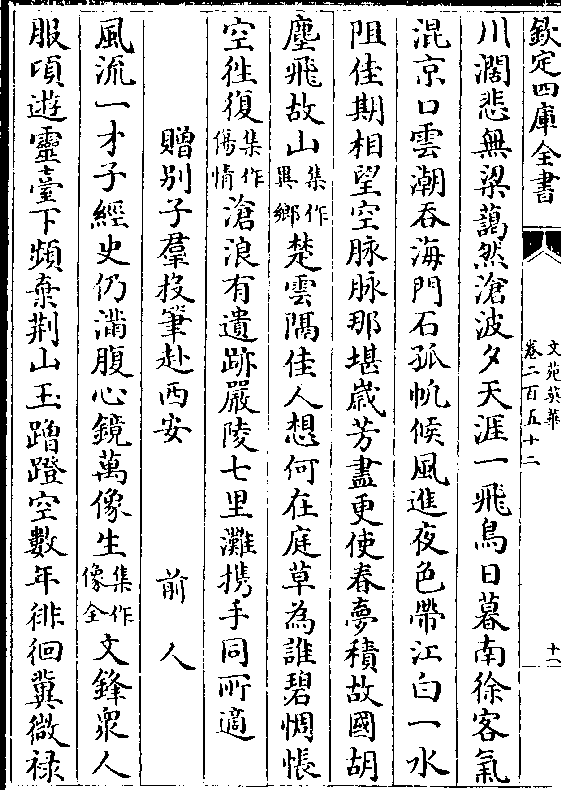 欽定四庫全書
文苑英華
卷二百五十二
十一
川濶悲無梁藹然滄波夕天涯一飛鳥日暮南徐客氣
混京口雲潮吞海門石孤帆候風進夜色帶江白一水
阻佳期相望空脉脉那堪歲芳盡更使春夢積故國胡
塵飛故山集作異鄉楚雲隔佳人想何在庭草為誰碧惆悵
空徃復集作傷情滄浪有遺跡嚴陵七里灘携手同所適
贈别子羣投筆赴西安 前人
風流一才子經史仍滿腹心鏡萬像生集作像全文鋒衆人
服頃遊靈臺下頻棄荆山玉蹭蹬空數年徘徊冀微禄